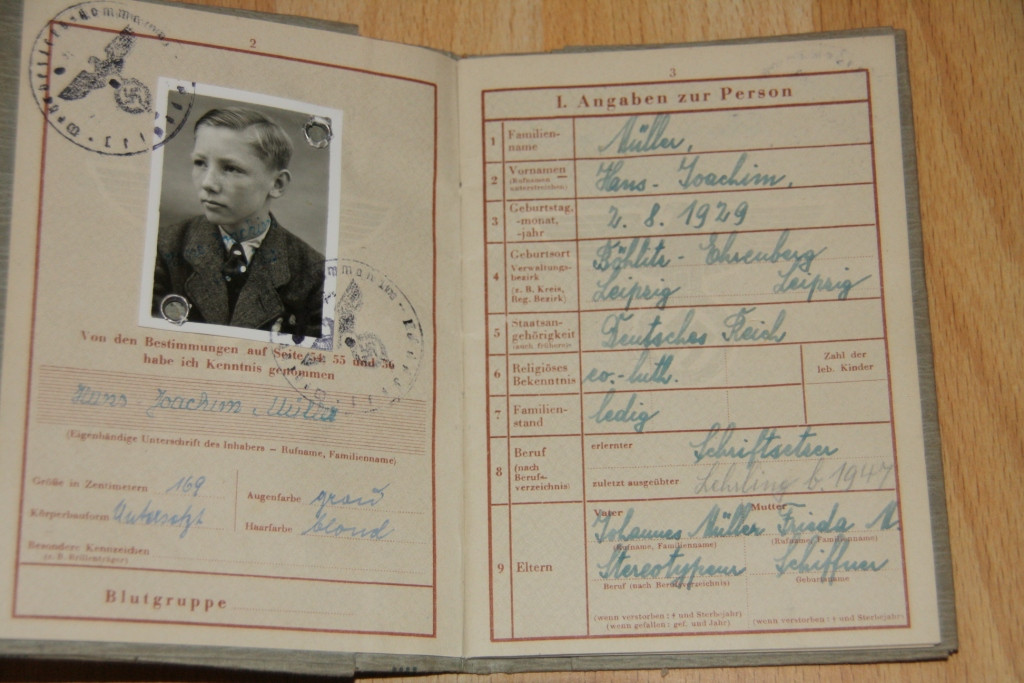 2
Von den Bestimmungen auf Seite 54, 55 und 56
habe ich Kenntnis genommen
Hans-Joachim Müller
(Eigenhändige Unterschrift des Inhabers – Rufname, Familienname)
Größe in Zentimetern 169
Körperbauform Untersetzt
Augenfarbe grau
Haarfarbe blond
Besondere Kennzeichen
(z. B. Brillenträger)
Blutgruppe
3
I. Angaben zur Person
1 Familien-
name
Müller,
2 Vornamen
(Rufnamen
unterstreichen)
Hans-Joachim,
3 Geburtstag,
-monat,
-jahr
2. 8. 1929
4 Geburtsort
Verwaltungs-
bezirk
(z. B. Kreis,
Reg. Bezirk)
Böhlitz-Ehrenberg
Leipzig Leipzig
5 Staatsan-
gehörigkeit
(auch frühere)
Deutsches Reich
6 Religiöses
Bekenntnis
ev.-luth.
Zahl der
leb. Kinder
7 Familien-
stand
ledig
8 Beruf
(nach
Berufs-
verzeichnis)
erlernter Schriftsetzer
zuletzt ausgeübter Lehrling b. 1947
9 Eltern
Vater
Johannes Müller
(Rufname, Familienname)
Stereotypeur
Beruf (nach Berufsverzeichnis)
(wenn verstorben: † und Sterbejahr)
(wenn gefallen: gef. und Jahr)
Mutter
Frieda M.
(Rufname, Familienname)
Schiffner
Geburtsname
(wenn verstorben: † und Sterbejahr)